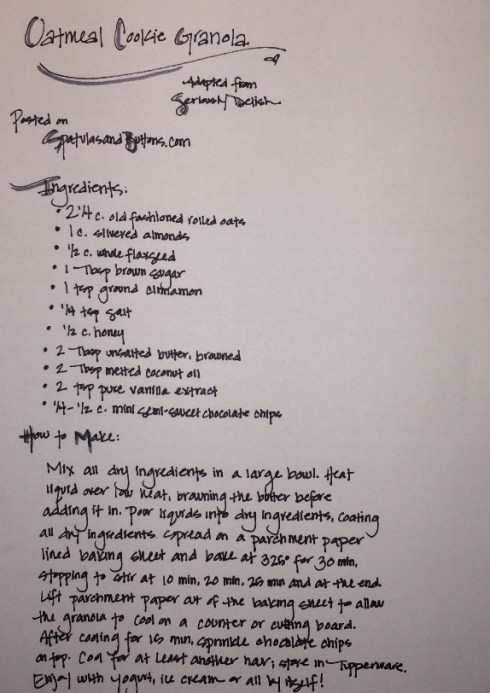 Oatmeal Cookie Granola
Adapted from
Seriously Delish
Posted on
SpatulasandButtons.com
Ingredients:
• 2 1/4 c. old fashioned rolled oats
• 1 c. slivered almonds
• 1/2 c. whole flaxseed
• 1 Tbsp brown sugar
• 1 tsp ground cinnamon
• 1/4 tsp salt
• 1/2 c. honey
• 2 Tbsp unsalted butter, browned
• 2 Tbsp melted coconut oil
• 2 tsp pure vanilla extract
• 1/4-1/2 c. mini semi-sweet chocolate chips
How to Make:
Mix all dry ingredients in a large bowl. Heat
liquid over low heat, browning the butter before
adding it in. Poor liquids into dry ingredients, coating
all dry ingredients. Spread on a parchment paper
lined baking sheet and bake at 325° for 30 min,
stopping to stir at 10 min, 20 min, 25 min and at the end.
Lift parchment paper out of the baking sheet to allow
the granola to cool on a counter or cutting board.
After cooling for 15 min, sprinkle chocolate chips
on top. Cool for at least another hour; store in Tupperware.
Enjoy with yogurt, ice cream or all by itself!